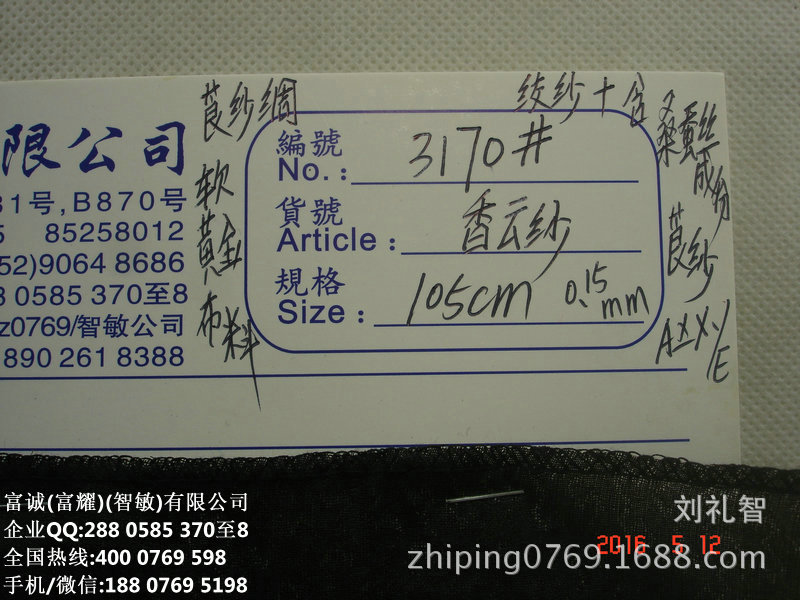 莨纱绸
绞纱十含
桑蚕丝
成份
莨纱
软
黄金
布料
限公司
31号,B870号
5 85258012
52)9064 8686
8 0585 370至8
z0769/智敏公司
890 261 8388
編號
No.: 3170#
貨號
Article: 香云纱
規格
Size: 105cm 0.15mm
富诚(富耀)(智敏)有限公司
企业QQ:288 0585 370至8
全国热线:400 0769 598
手机/微信:188 0769 5198
刘礼智
2016 5 12
zhiping0769.1688.com